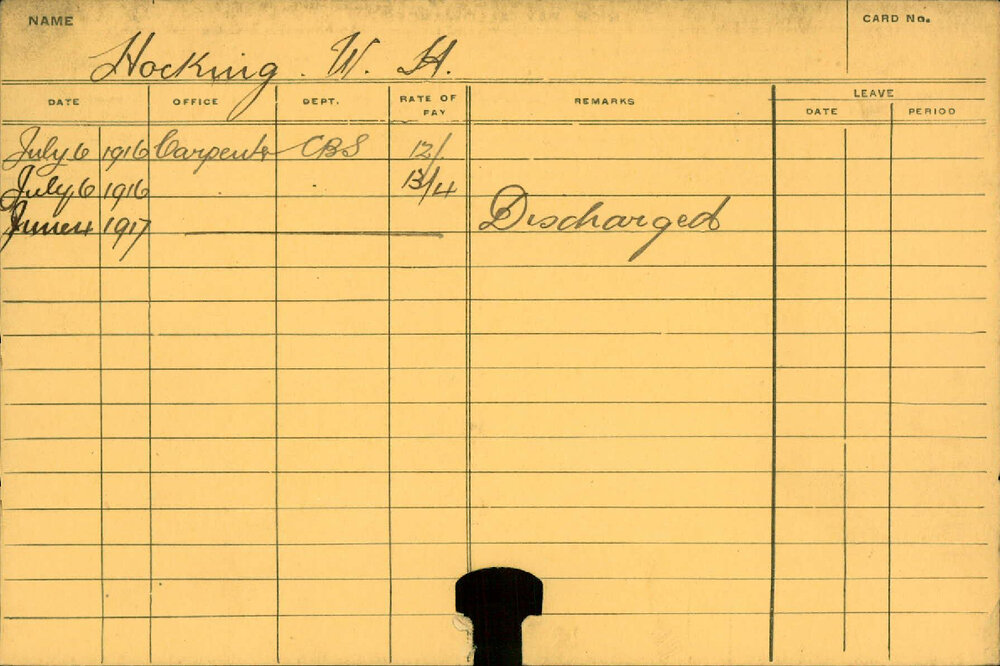 NAME
CARD No.
Hocking. W. H.
DATE OFFICE DEPT. RATE OF PAY REMARKS LEAVE
DATE PERIOD
July 6 1916 Carpenter CBS 12/
July 6 1916 " " 13/4
June 4 1917 Discharged